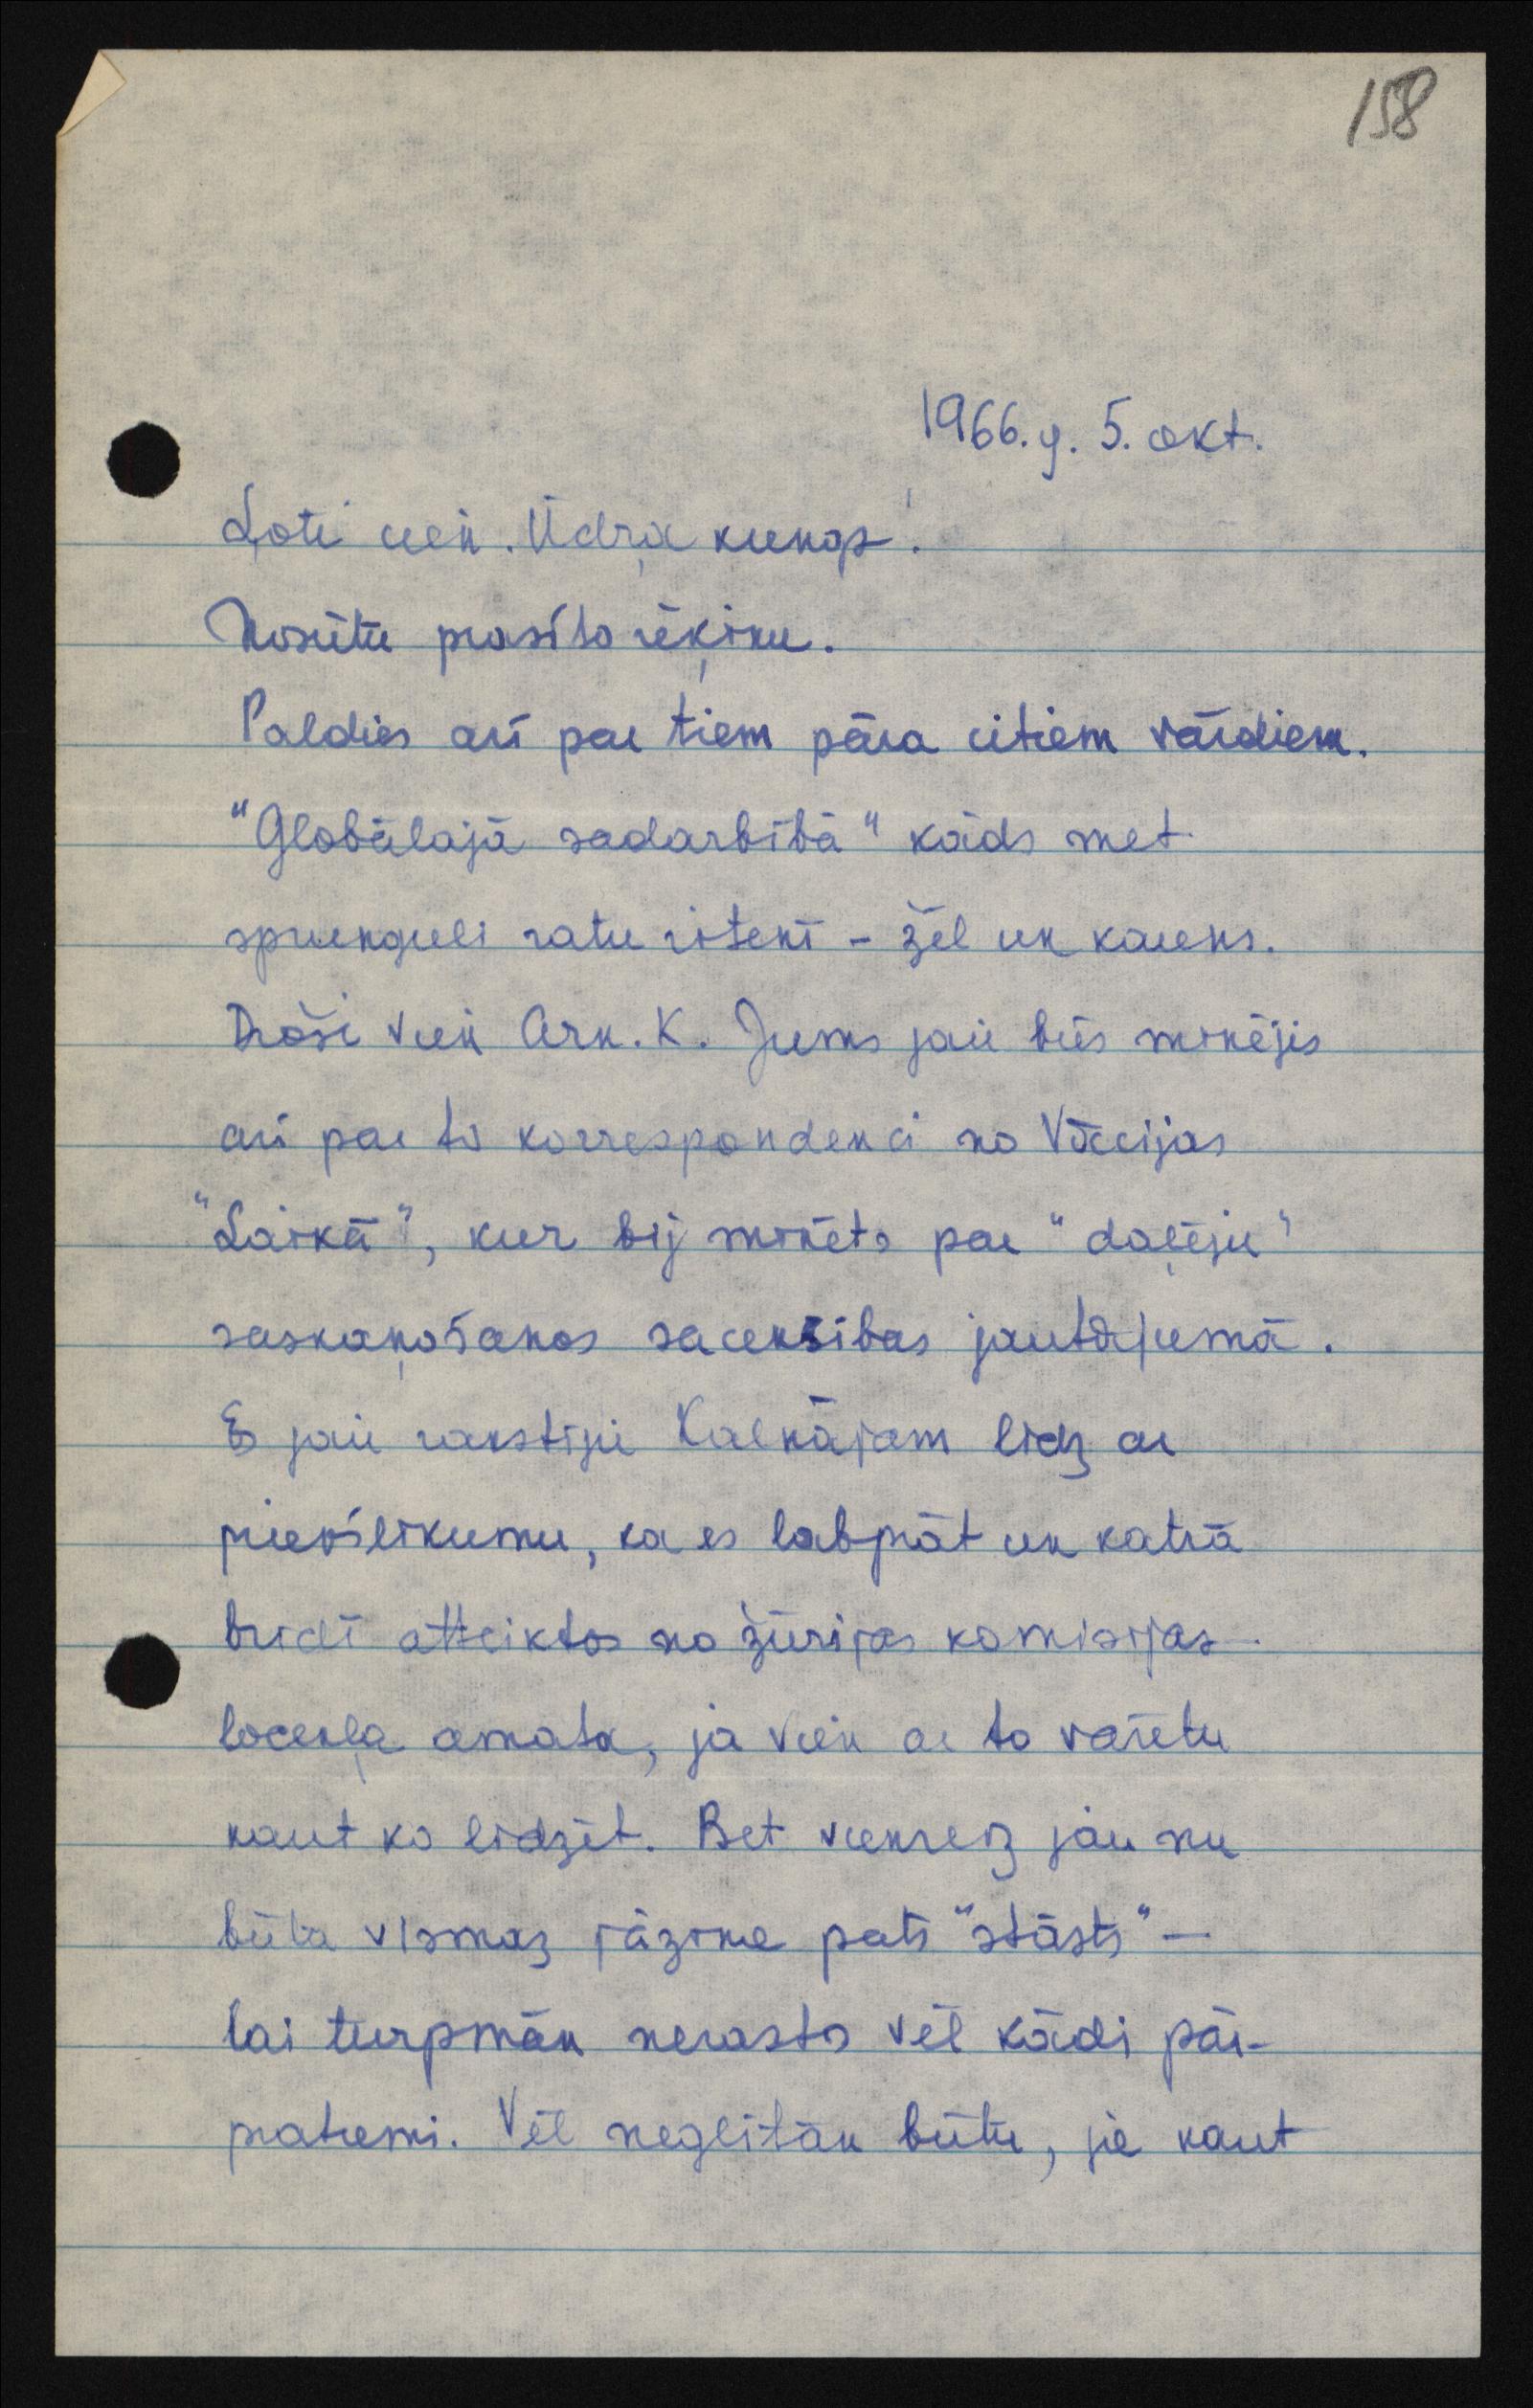 158
1966. g. 5. okt.
Ļoti cien. Ūdra kungs!
Nosūtu prasīto rēķinu.
Paldies arī par tiem pāra citiem vārdiem.
"Globālajā sadarbībā" kāds met
sprunguli ratu ritenī - žēl un kauns.
Droši vien Arn. K. Jums jau būs minējis
arī par to korrespondenci no Vācijas
"Laikā", kur bij minēts par "daļēju"
saskaņošanos sacensības jautājumā.
Es jau rakstīju Kalnājam līdz ar
priekšlikumu, ka es labprāt un katrā
brīdī atteiktos no žūrijas komisijas
locekļa amata, ja vien ar to varētu
kaut ko līdzēt. Bet vienreiz jau nu
būtu vismaz jāzina pats "stāsts" —
lai turpmāk nerastos vēl kādi pār-
pratumi. Vēl neglītāk būtu, ja kaut